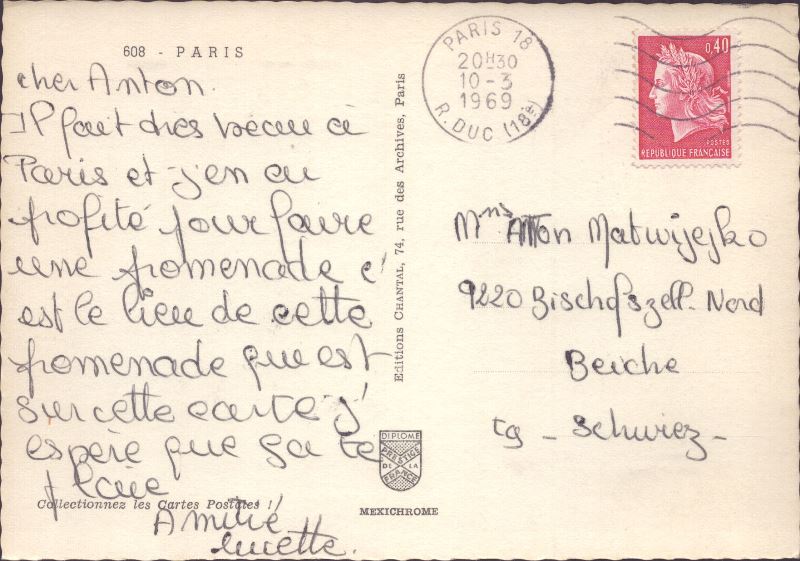 608 - PARIS
cher Anton.
Il fait très beau à
Paris et j'en ai
profité pour faire
une promenade c'
est le lieu de cette
promenade que est
sur cette carte j'
espère que ça te
plaie
Amitié
Lucette.
Collectionnez les Cartes Postales !
Editions CHANTAL, 74, rue des Archives, Paris
DIPLOME
PRESTIGE
DE LA
FRANCE
MEXICHROME
PARIS 18
20H30
10-3
1969
R. DUC (18E)
0,40
POSTES
REPUBLIQUE FRANÇAISE
Anton Matwijejko
9220 Bischofszell-Nord
Beiche
tg - Schwiez -